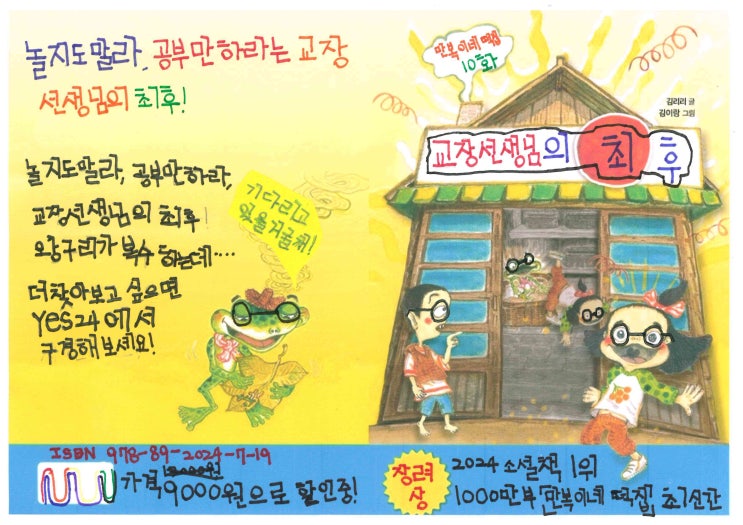 놀지도말라, 공부만하라는 교장
선생님의 최후!
놀지도말라, 공부만하라,
교장선생님의 최후!
왕구리가 복수 하는데....
더찾아보고 싶으면
yes24에서
구경해보세요!
기다리고
있을거굴챠!
ISBN 978-89-2024-7-19
가격
9000원으로 할인중!
만복이네 떡집
10화
김리리 글
김이랑 그림
교장선생님의 최후
장려
상
2024 소설책 1위
1000만부 「만복이네 떡집」 최신간